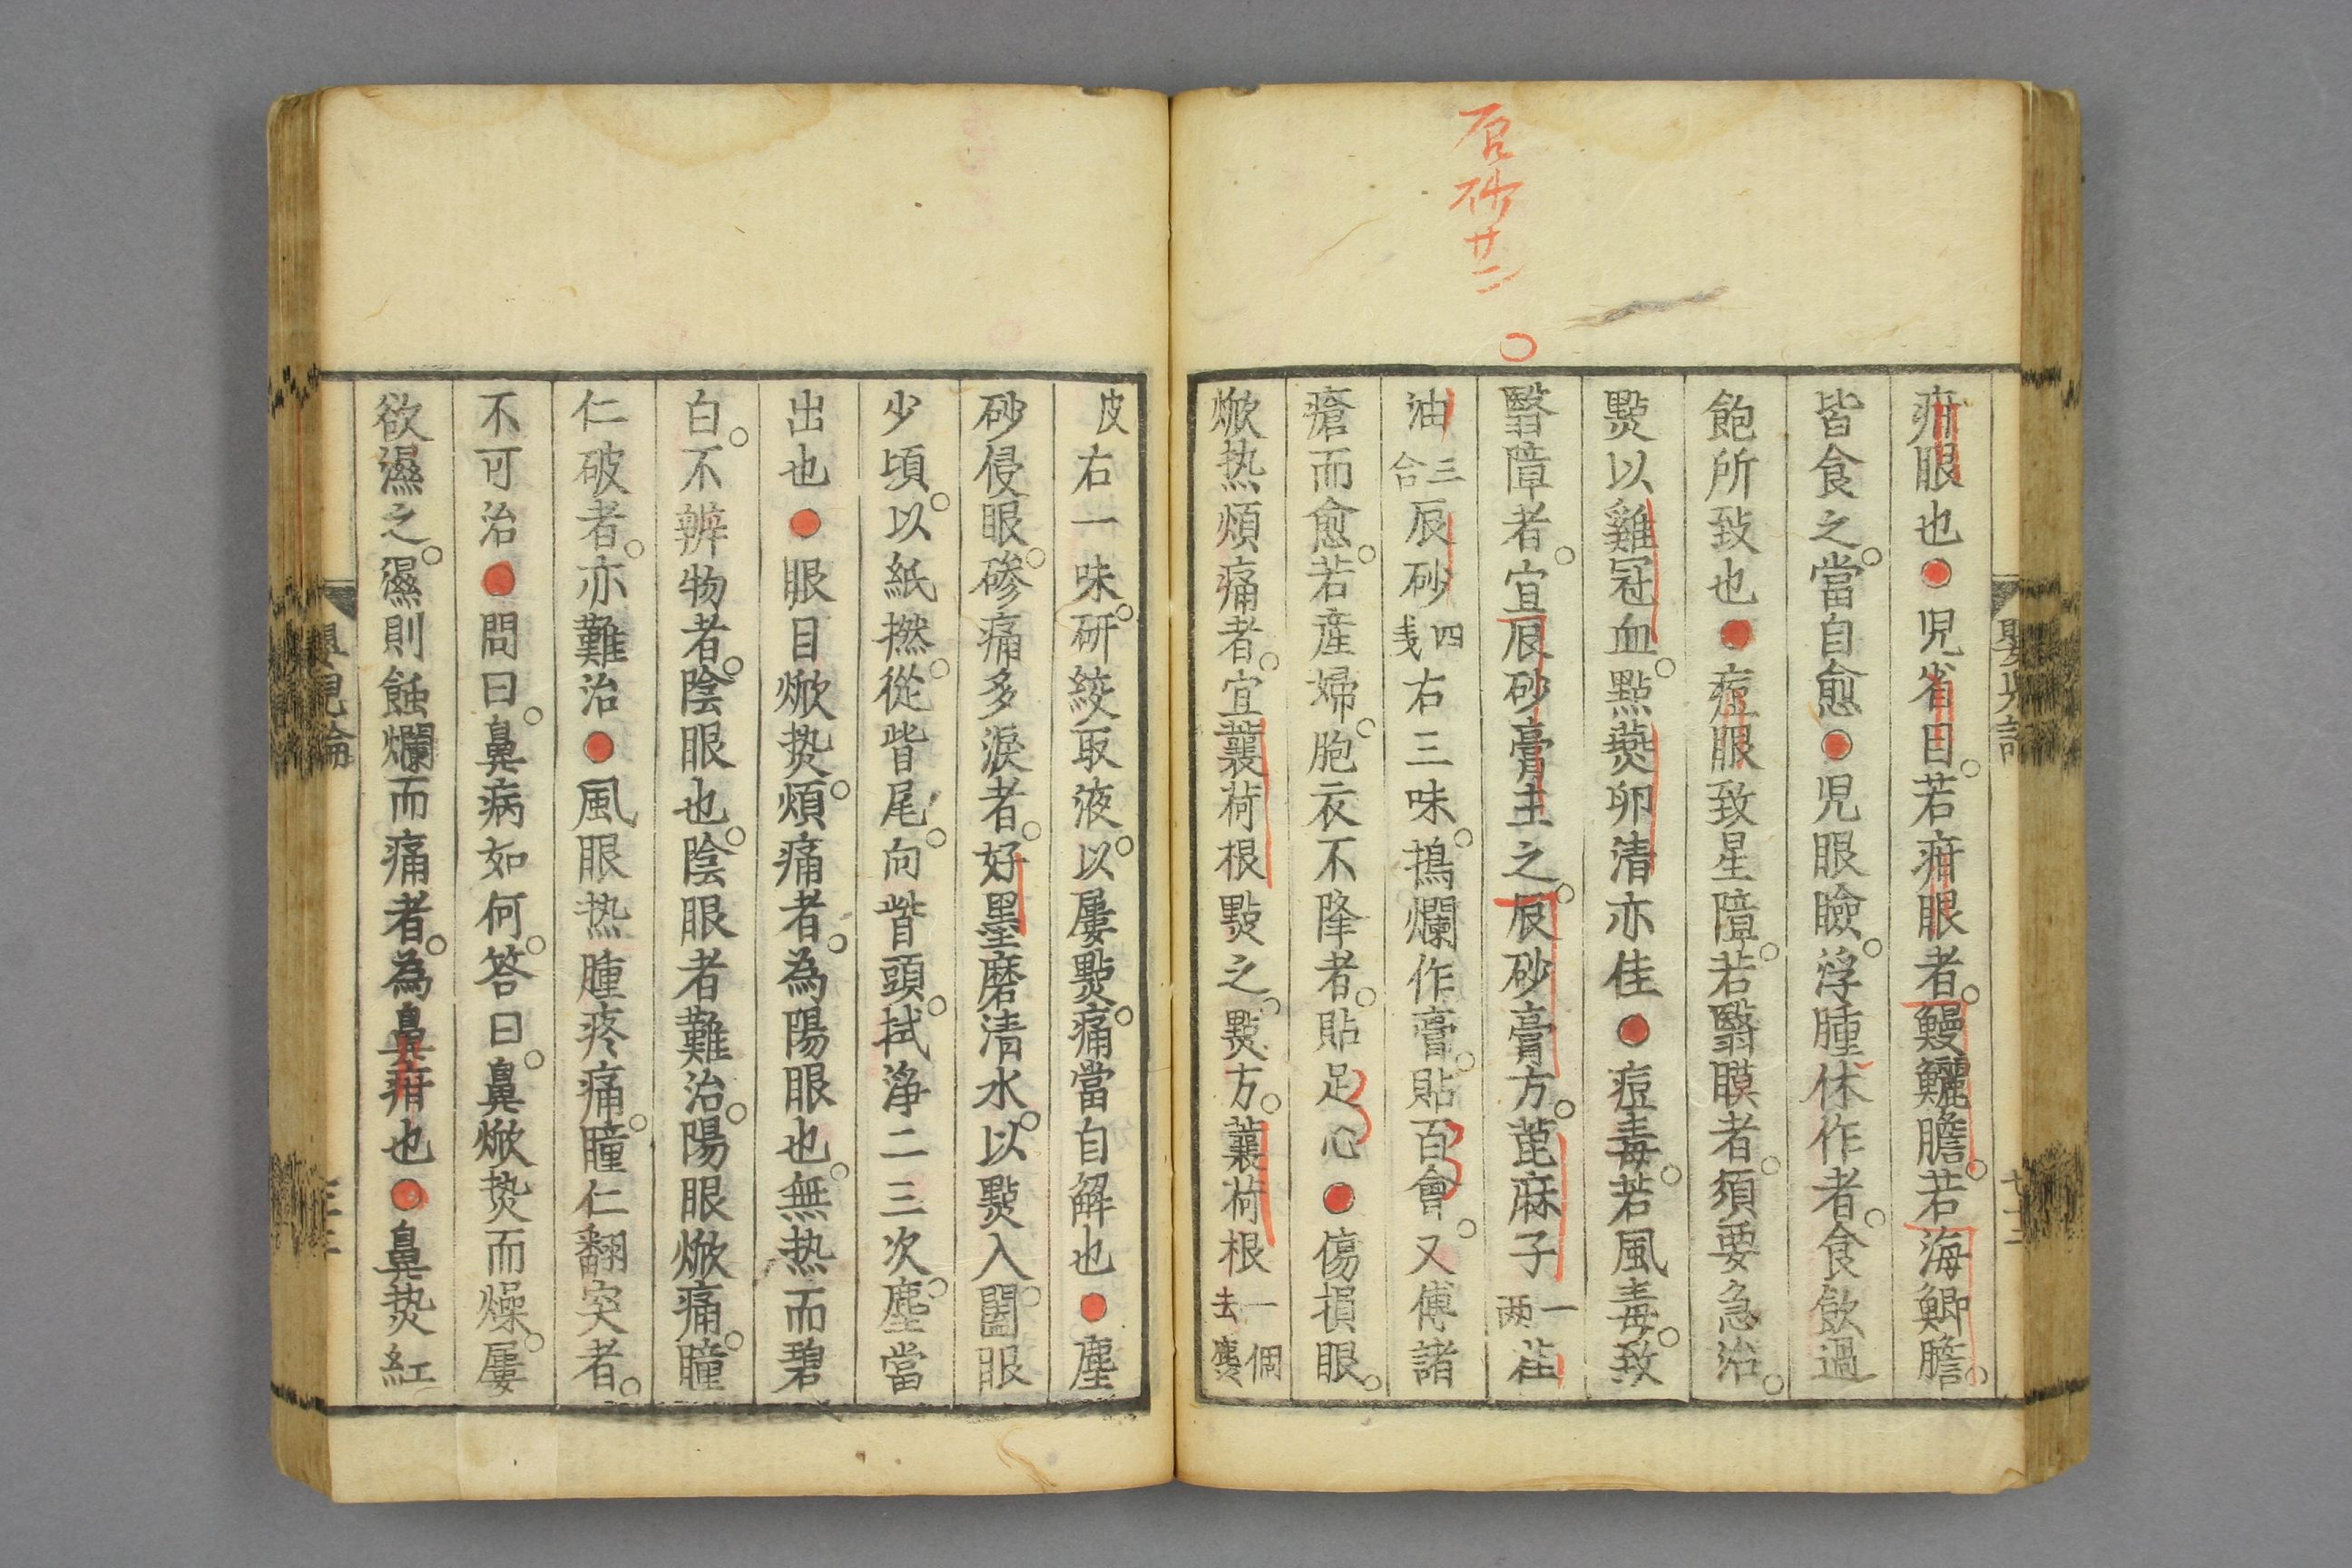 辰砂廿二
疳眼也●児省目。若疳眼者。鰻鱺膽。若海鯽膽。
皆食之。當自愈●児眼瞼。浮腫休作者。食飲過
飽所致也●痘眼致星障。若翳膜者。須要急治。
㸃以雞冠血。點燕卵清亦佳●痘毒。若風毒。致
翳障者。宜辰砂膏主之。辰砂膏方。蓖麻子一两荏
油三合辰砂四戔右三味。搗爛作膏。貼百會。又傅諸
瘡而愈。若産婦。胞衣不降者。貼足心●傷損眼。
焮热煩痛者。宜蘘荷根㸃之。㸃方。蘘荷根一個去麤
皮右一味。研絞取液。以屢㸃。痛當自解也●塵
砂侵眼。磣痛多淚者。好墨磨清水。以㸃入。闔眼
少頃。以紙撚。從眥尾。向眥頭。拭浄二三次。塵當
出也●眼目焮热。煩痛者。為陽眼也。無热而碧
白。不辨物者。陰眼也。陰眼者難治。陽眼焮痛。瞳
仁破者。亦難治●風眼热腫疼痛。瞳仁翻突者。
不可治●問曰。鼻病如何。答曰。鼻焮热而燥。屢
欲濕之。濕則蝕爛而痛者。為鼻疳也●鼻热紅
嬰児論